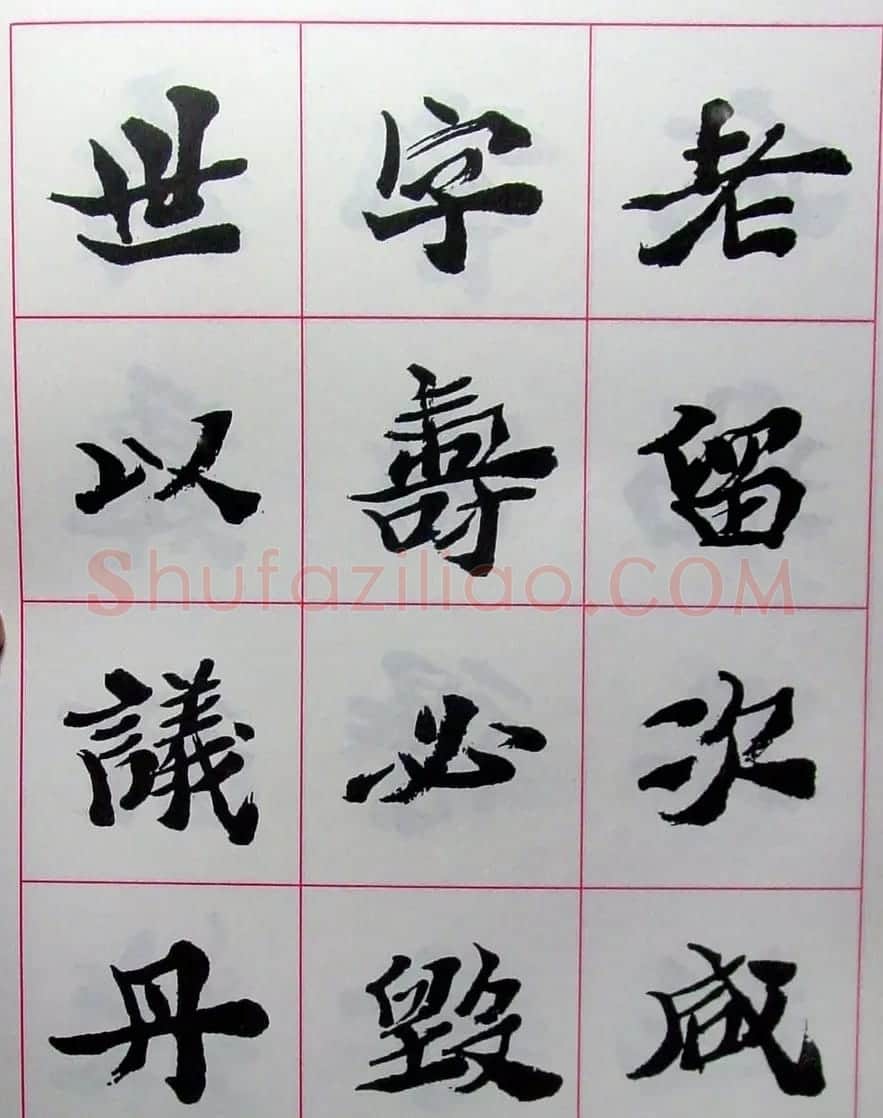 世 字 老
以 壽 留
Shufaziliao.COM
議 必 次
丹 毀 咸